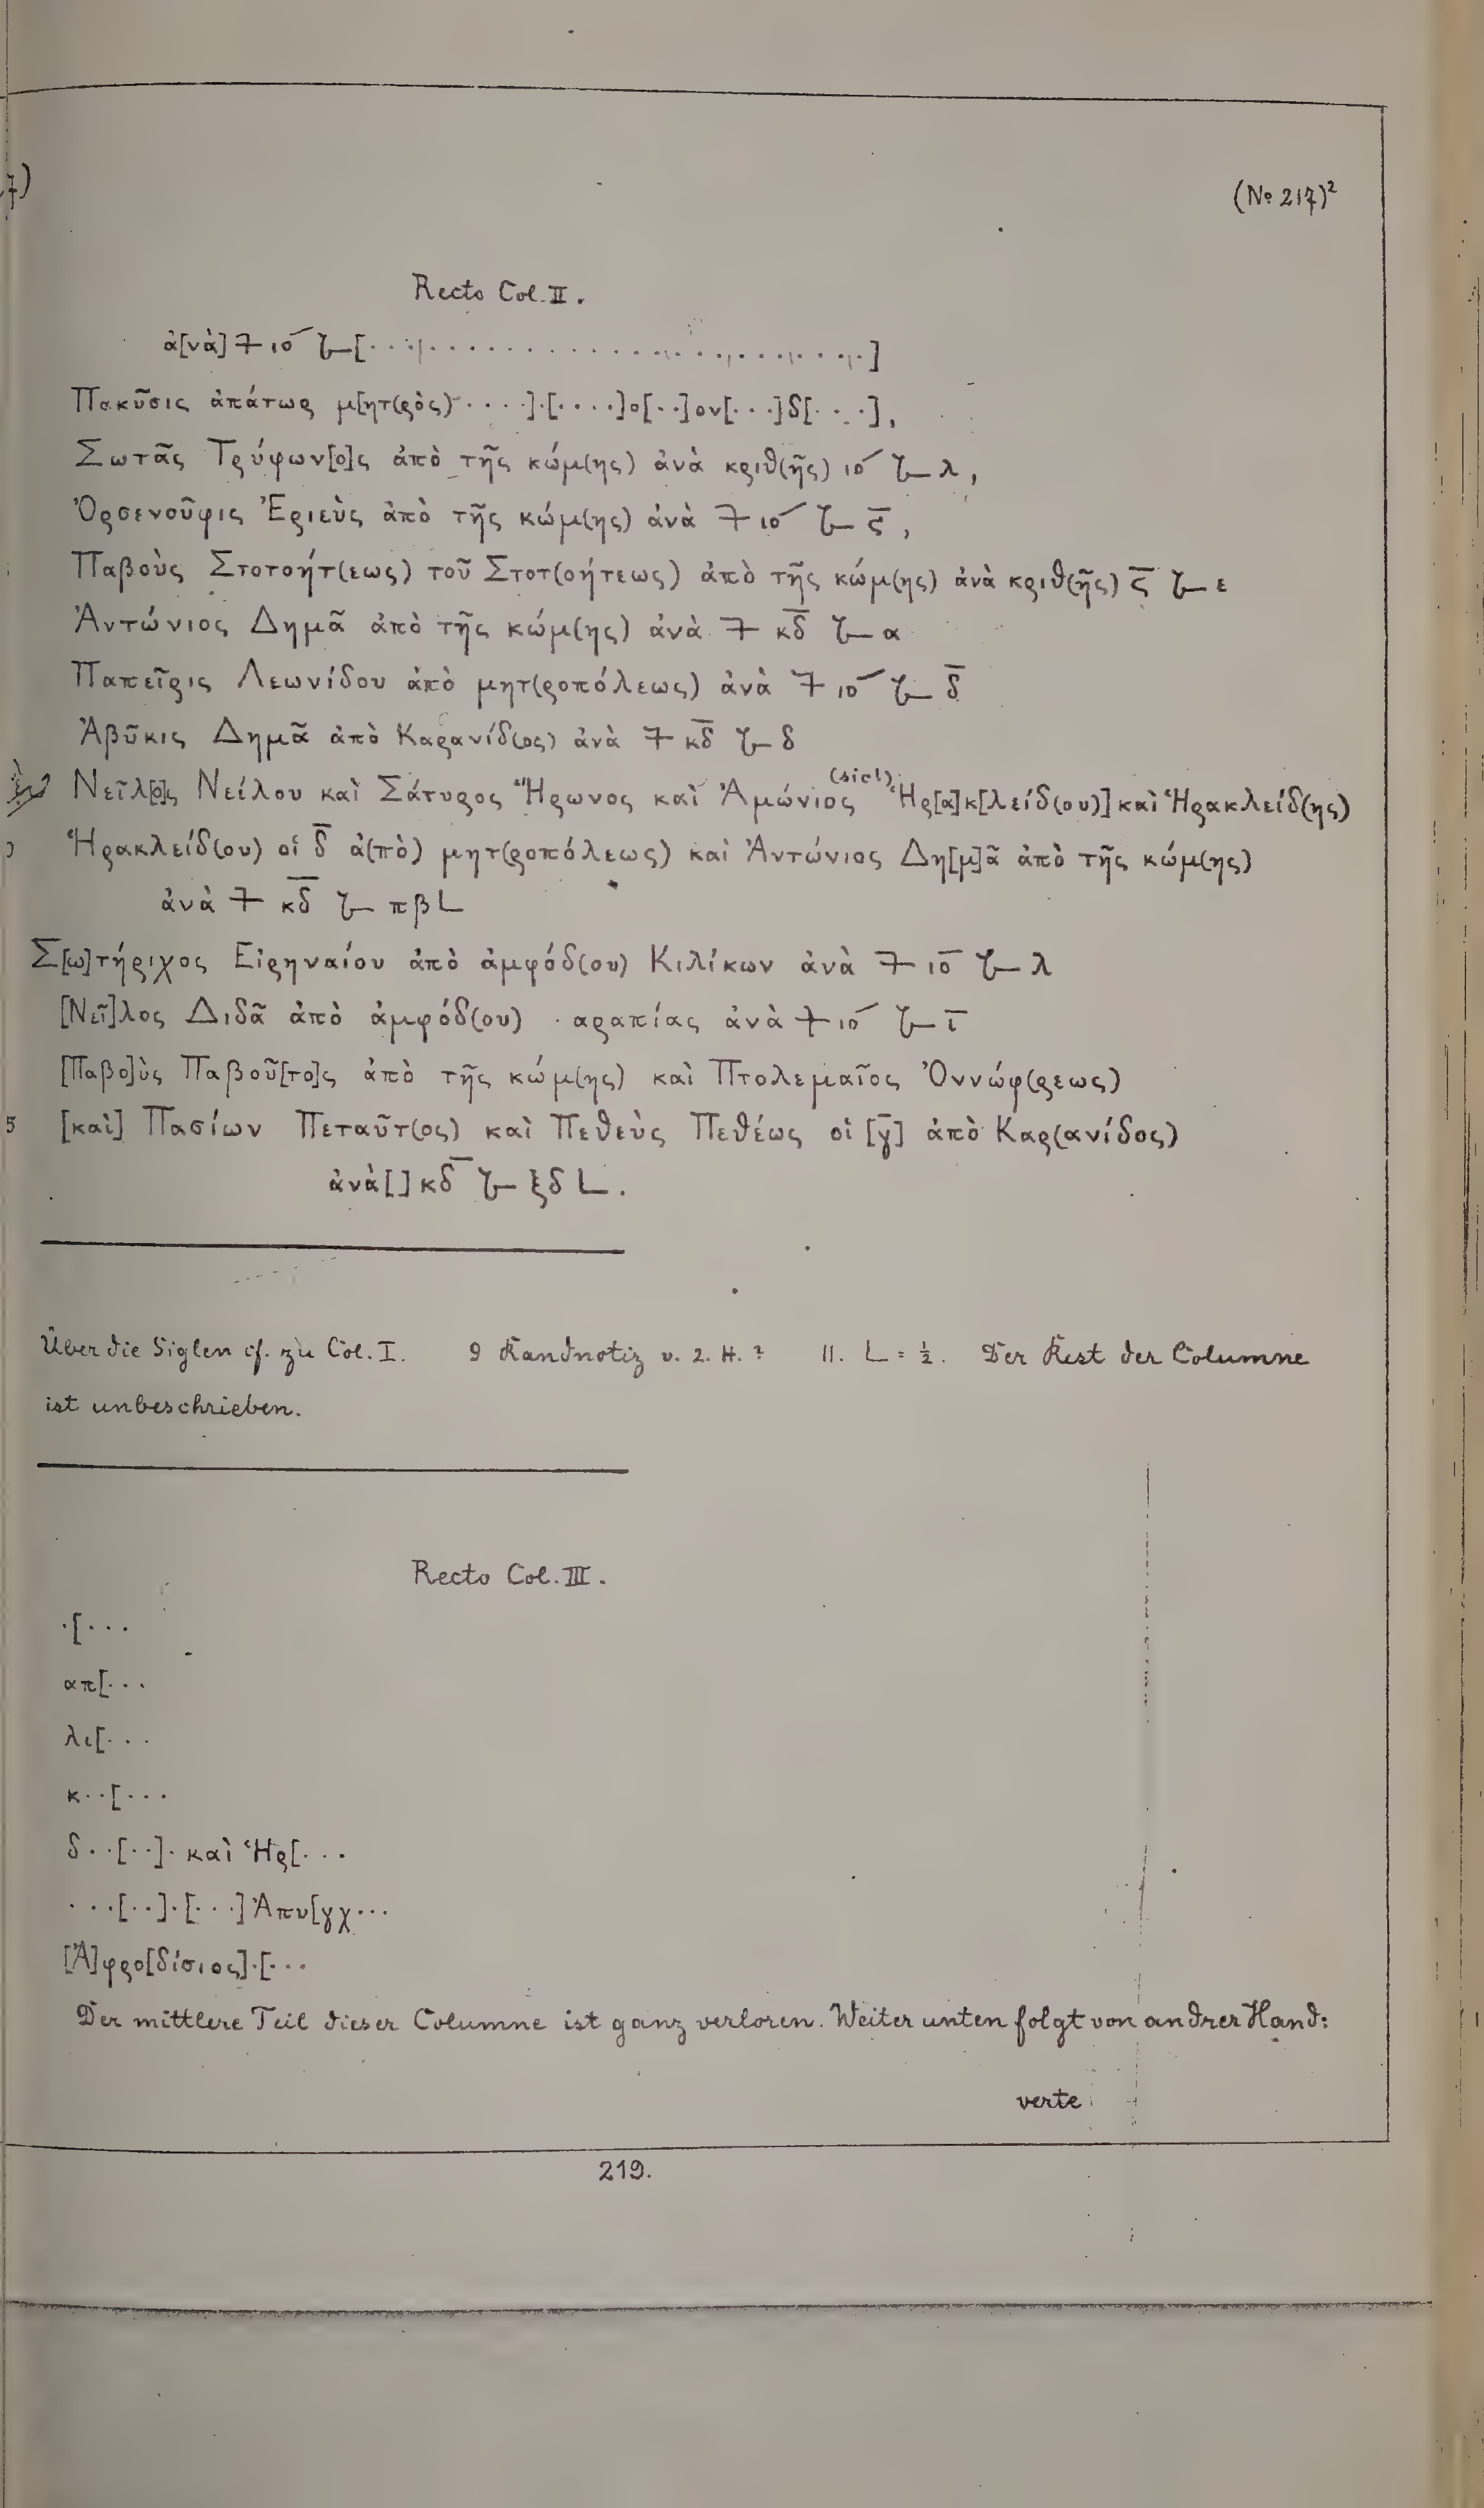 7)
(No 217)²
Recto Col. II.
ἀ[νὰ] 7 ιό ζ— [. . . . . . . . . . . . . . . . . . . . . . . .]
Πακῦσις ἀπάτωρ μ[ητ(ρὸς) . . . .].[. . . .]ο[. .]ον[. . .]δ[. . . .],
Σωτᾶς Τρύφων[ο]ς ἀπὸ τῆς κώμ(ης) ἀνὰ κριθ(ῆς) ιό ζ— λ,
Ὀρσενοῦφις Ἑριεὺς ἀπὸ τῆς κώμ(ης) ἀνὰ 7 ιό ζ— ς̅,
Παβοὺς Στοτοήτ(εως) τοῦ Στοτ(οήτεως) ἀπὸ τῆς κώμ(ης) ἀνὰ κριθ(ῆς) ς̅ ζ— ε
Ἀντώνιος Δημᾶ ἀπὸ τῆς κώμ(ης) ἀνὰ 7 κδ̅ ζ— α
Παπεῖρις Λεωνίδου ἀπὸ μητ(ροπόλεως) ἀνὰ 7 ιό ζ— δ̅
Ἀβῦκις Δημᾶ ἀπὸ Καρανίδ(ος) ἀνὰ 7 κδ̅ ζ— δ
Νεῖλ[ο]ς Νείλου καὶ Σάτυρος Ἥρωνος καὶ Ἀμώνιος (sic!) Ἡρ[α]κ[λείδ(ου)] καὶ Ἡρακλείδ(ης)
Ἡρακλείδ(ου) οἱ δ̅ ἀ(πὸ) μητ(ροπόλεως) καὶ Ἀντώνιος Δη[μ]ᾶ ἀπὸ τῆς κώμ(ης)
ἀνὰ 7 κδ̅ ζ— πβ L
Σ[ω]τήριχος Εἰρηναίου ἀπὸ ἀμφόδ(ου) Κιλίκων ἀνὰ 7 ιο̅ ζ— λ
[Νεῖ]λος Διδᾶ ἀπὸ ἀμφόδ(ου) . αραπίας ἀνὰ 7 ιό ζ— ι̅
[Παβο]ὺς Παβοῦ[το]ς ἀπὸ τῆς κώμ(ης) καὶ Πτολεμαῖος Ὀννώφ(ρεως)
5 [καὶ] Πασίων Πεταῦτ(ος) καὶ Πεθεὺς Πεθέως οἱ [γ̅] ἀπὸ Καρ(ανίδος)
ἀνὰ [ ] κδ̅ ζ— ξδ L.
Über die Siglen cf. zu Col. I. 9 Randnotiz v. 2. H. ? 11. L = ½. Der Rest der Columne
ist unbeschrieben.
Recto Col. III.
.[. . .
απ[. . .
λι[. . .
κ. .[. . .
δ. .[. .]. καὶ Ἡρ[. . .
. . .[. .].[. . .] Ἀπυ[γχ. . .
[Ἀ]φρο[δίσιος].[. . .
Der mittlere Teil dieser Columne ist ganz verloren. Weiter unten folgt von andrer Hand:
verte
219.